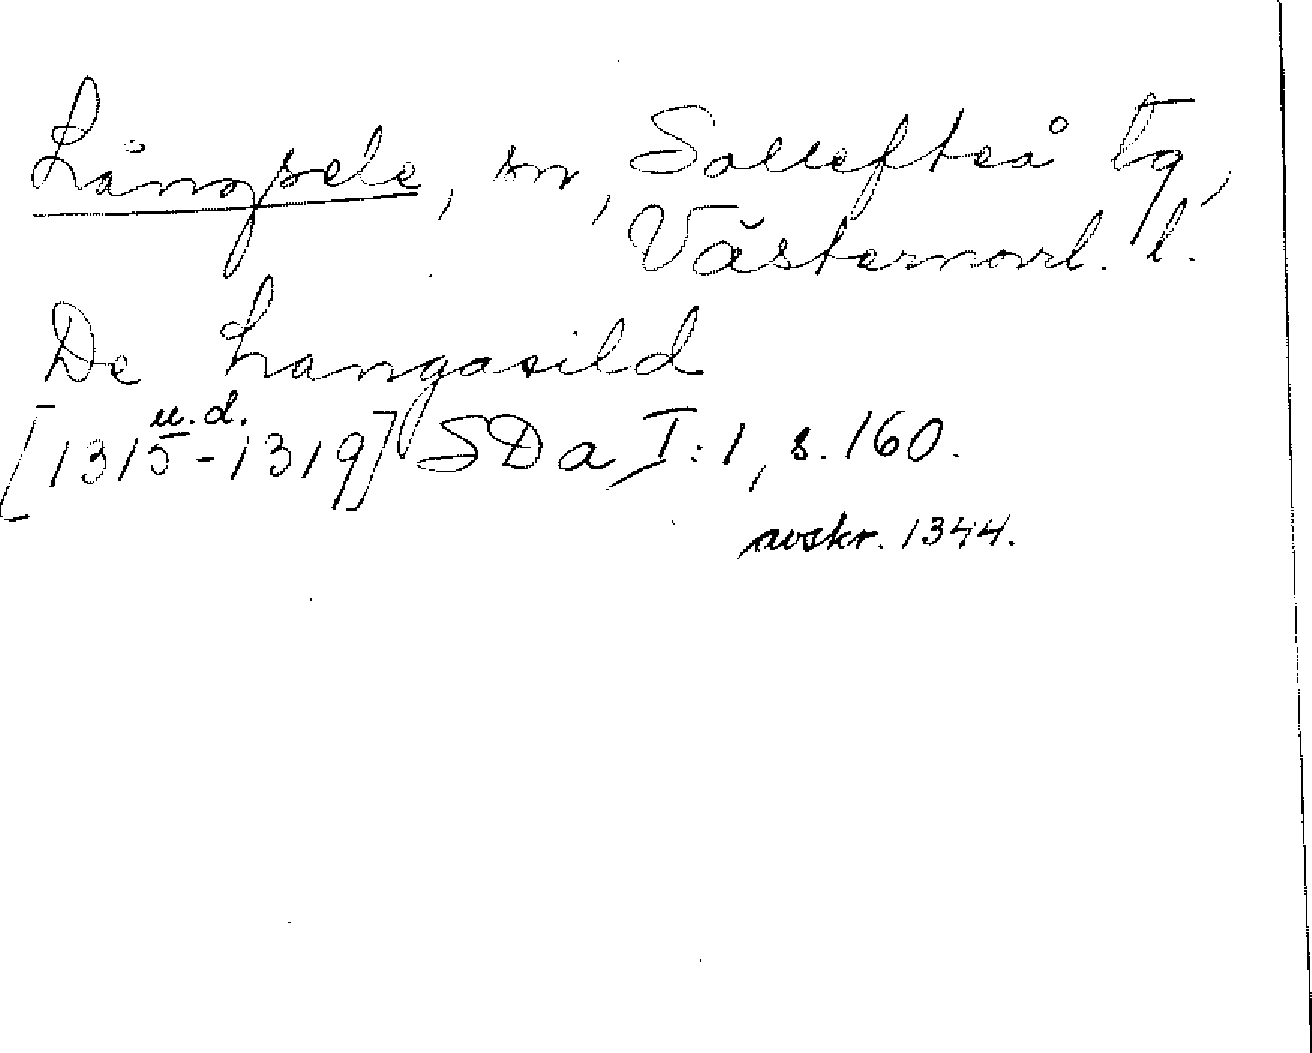 Långsele, sn, Sollefteå tg,
Västernorrl. l.
De Langasild
u.d.
[1315-1319] SDa I:1, s. 160.
avskr. 1344.